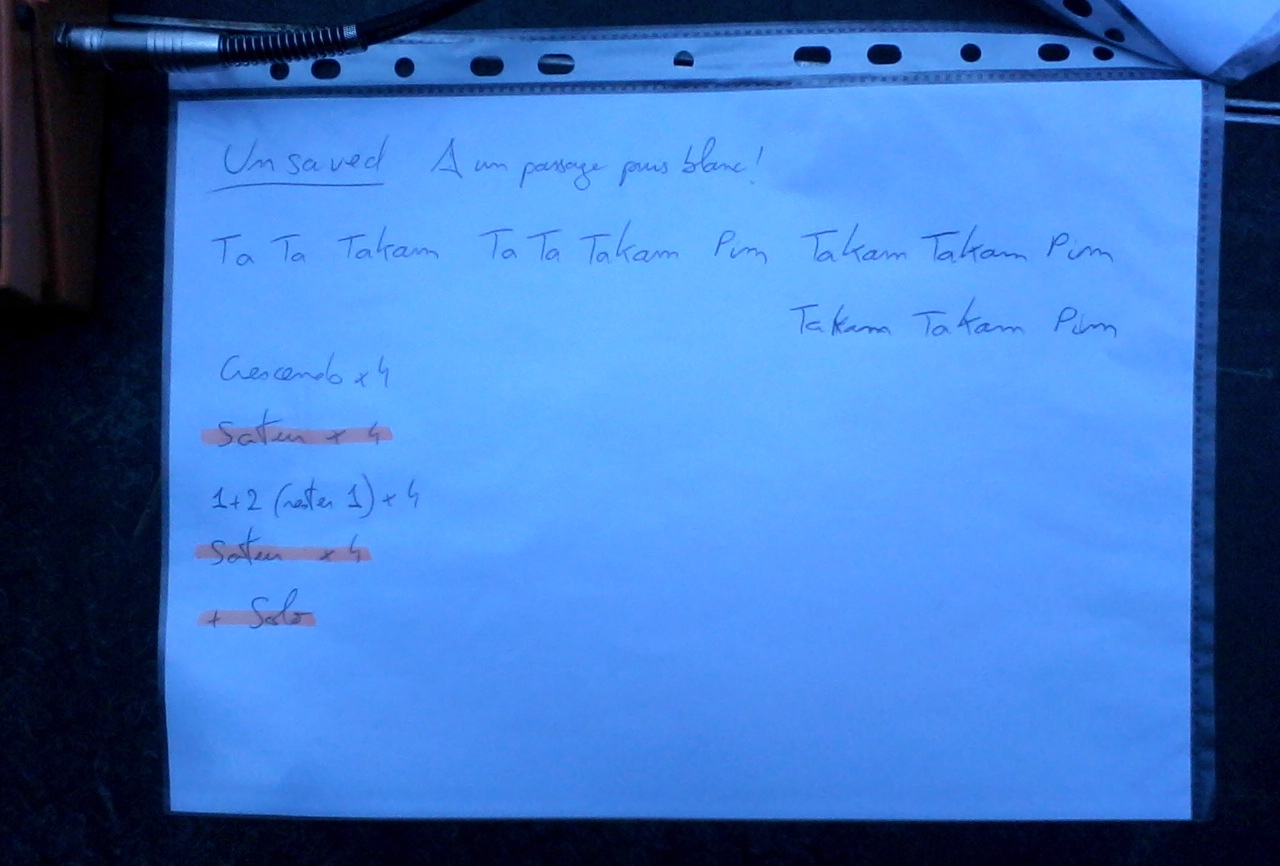 Unsaved A un passage puis blanc!
Ta Ta Takam Ta Ta Takam Pim Takam Takam Pim
Takam Takam Pim
Crescendo x 4
Satur x 4
1+2 (rester 1) x 4
Satur x 4
+ Solo